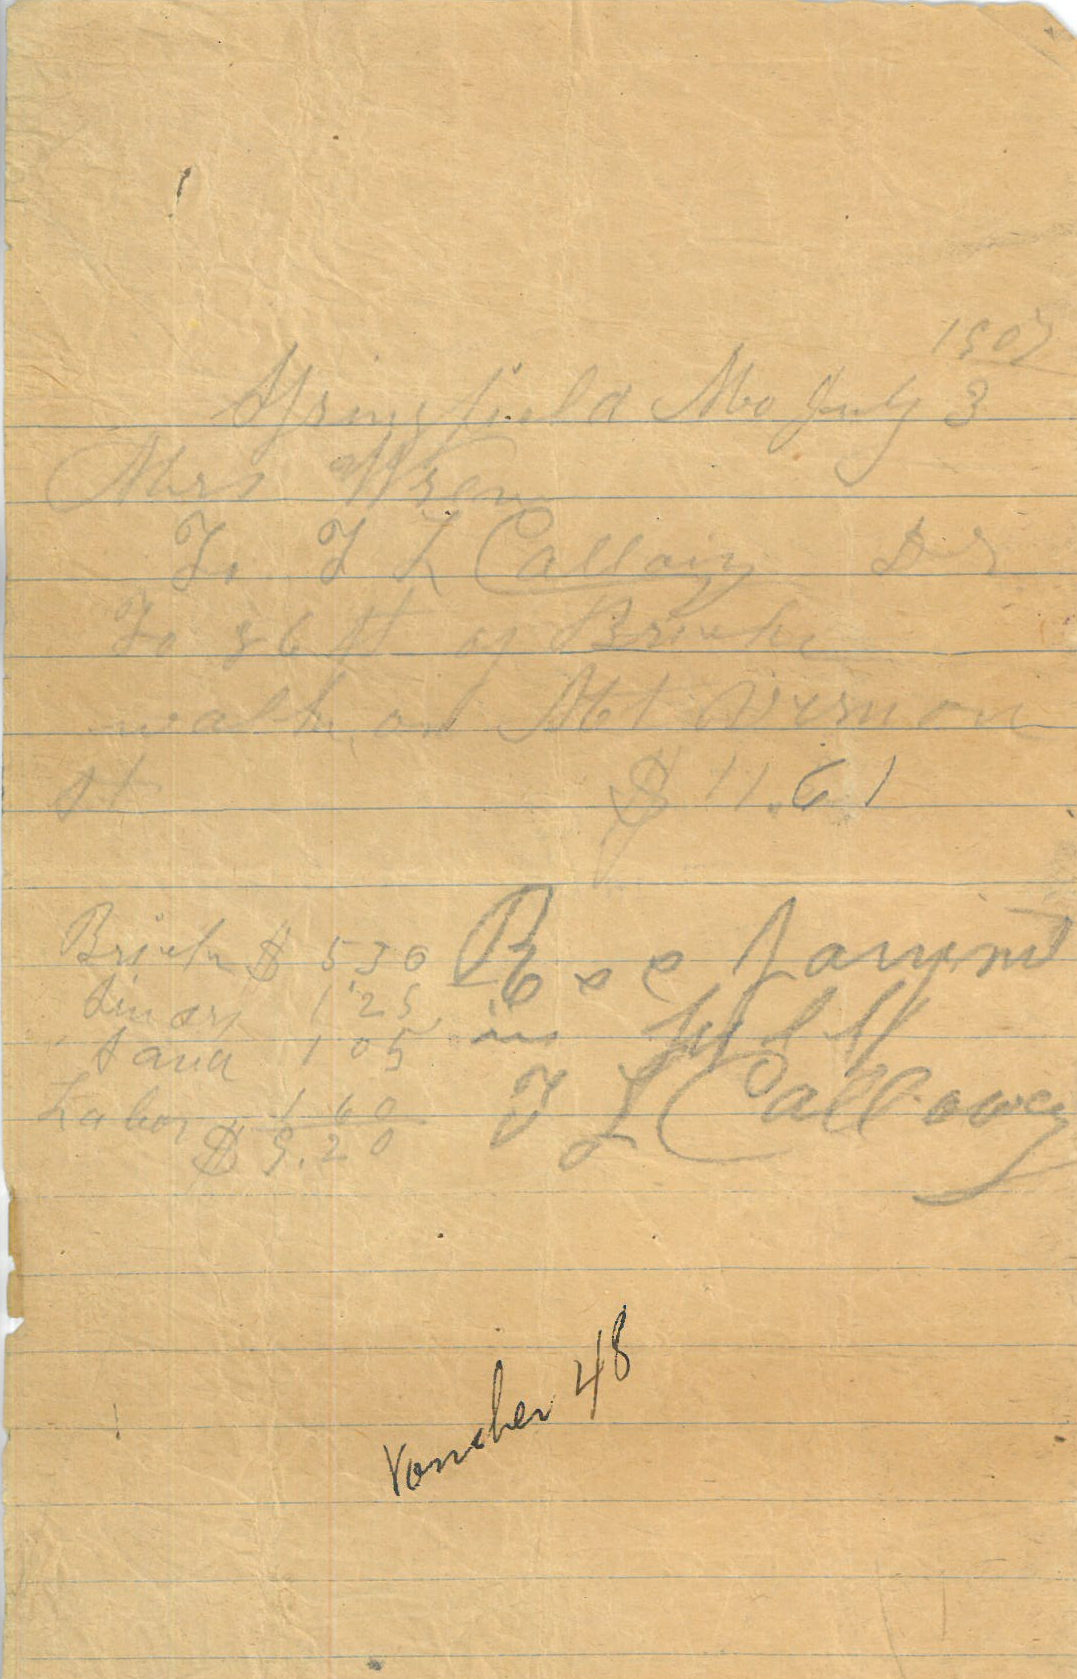 1907
Springfield Mo July 3
Mrs Wren
To T L Callaway Dr
To 86 ft of Brick
walk on Mt Vernon
St $ 11.61
Brick $ 5 30 Rec payment
1 25 in full
Sand 1 05 T L Calloway
Labor 1 60
$ 9.20
Voucher 48